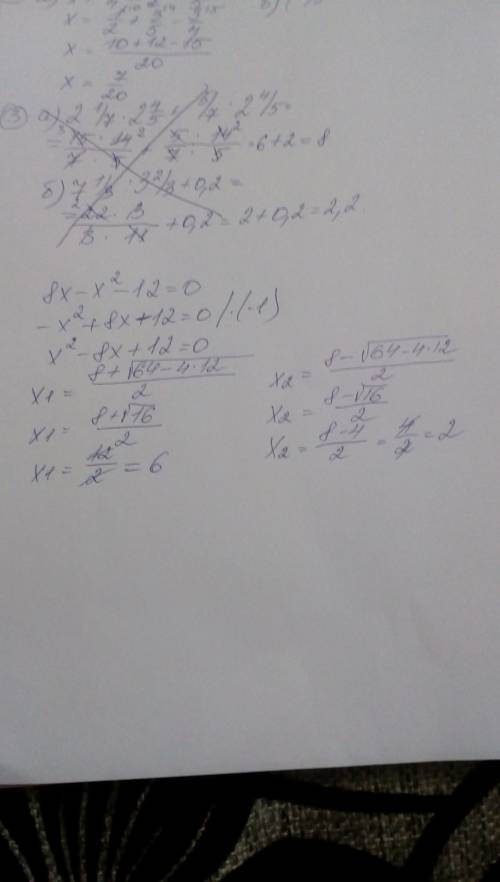 x = (10+12-15)/20
x = 7/20
③ а) 2 1/7 · 2 4/5 + 5/7 · 2 4/5 =
= (15 · 14)/(7 · 5) + (5 · 14)/(7 · 5) = 6+2=8
б) 7 1/3 : 3 2/3 + 0,2 =
= (22 · 3)/(3 · 11) + 0,2 = 2+0,2 = 2,2.
8x - x² - 12 = 0
-x² + 8x + 12 = 0 /·(-1)
x² - 8x + 12 = 0
x1 = (8+√64-4·12)/2
x1 = (8+√16)/2
x1 = 12/2 = 6
x2 = (8-√64-4·12)/2
x2 = (8-√16)/2
x2 = (8-4)/2 = 4/2 = 2